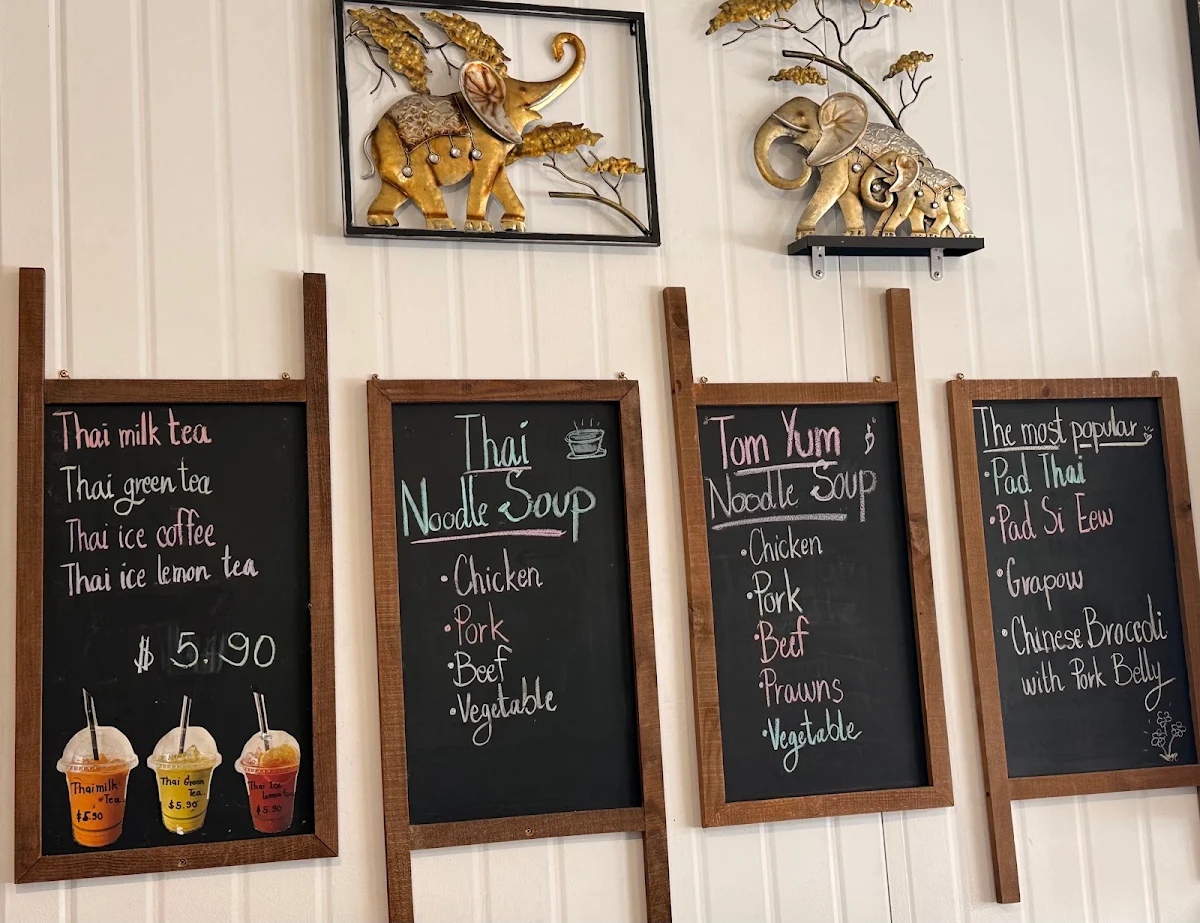 Thai milk tea
Thai green tea
Thai ice coffee
Thai ice lemon tea
$ 5.90
Thai milk
Tea
$5.90
Thai Green
Tea
$5.90
Thai Ice
Lemon tea
$5.90
Thai
Noodle Soup
•Chicken
•Pork
•Beef
•Vegetable
Tom Yum
Noodle Soup
•Chicken
•Pork
•Beef
•Prawns
•Vegetable
The most popular
•Pad Thai
•Pad Si Eew
•Grapow
•Chinese Broccoli
with Pork Belly